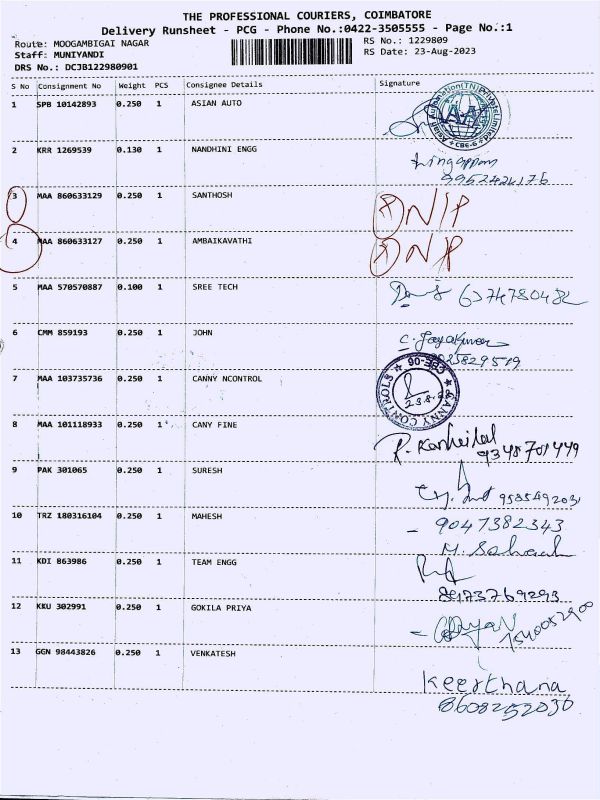 THE PROFESSIONAL COURIERS, COIMBATORE
Delivery Runsheet - PCG - Phone No.:0422-3505555 - Page No.:1
Route: MOOGAMBIGAI NAGAR
RS No.: 1229809
Staff: MUNIYANDI
RS Date: 23-Aug-2023
DRS No.: DCJB122980901
S No Consignment No Weight PCS Consignee Details Signature
1 SPB 10142893 0.250 1 ASIAN AUTO
Asian Automation(TN)Private Limited
AA
CBE-6
2 KRR 1269539 0.130 1 NANDHINI ENGG
Lingappan
3 MAA 860633129 0.250 1 SANTHOSH
4 MAA 860633127 0.250 1 AMBAIKAVATHI
5 MAA 570570887 0.100 1 SREE TECH
6374780482
6 CMM 859193 0.250 1 JOHN
C. Jayakumar
7 MAA 103735736 0.250 1 CANNY NCONTROL
CANNY CONTROLS
CBE-06
8 MAA 101118933 0.250 1 CANY FINE
9348701449
9 PAK 301065 0.250 1 SURESH
10 TRZ 180316104 0.250 1 MAHESH
9047382343
11 KDI 863986 0.250 1 TEAM ENGG
12 KKU 302991 0.250 1 GOKILA PRIYA
13 GGN 98443826 0.250 1 VENKATESH
Keerthana
8608252030